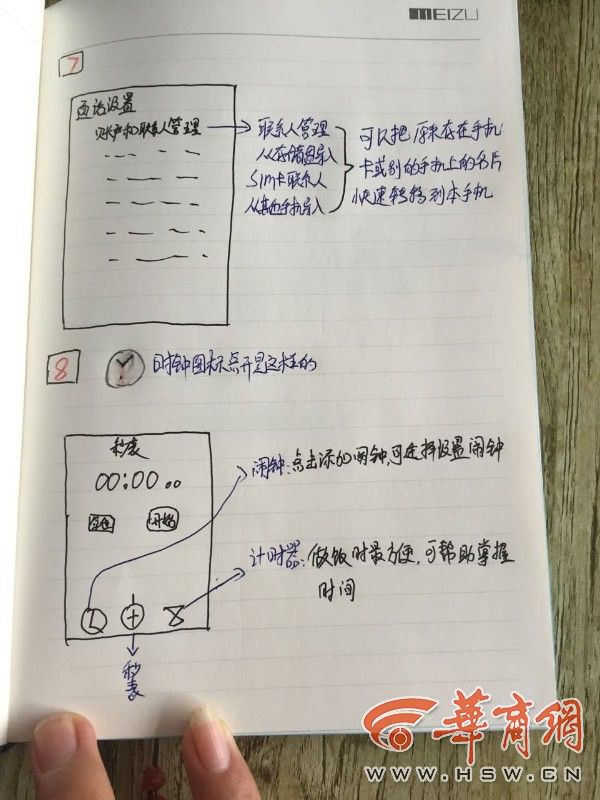 MEIZU
7
通话设置
账户和联系人管理
联系人管理
从存储器导入
SIM卡联系人
从其他手机导入
可以把原来存在手机
卡或别的手机上的名片
快速转移到本手机
8
时钟图标点开是这样的
秒表
00:00.00
开始
闹钟:点击添加闹钟,可选择设置闹钟
计时器:做饭时最方便,可帮助掌握
时间
秒表
華商網
WWW.HSW.CN